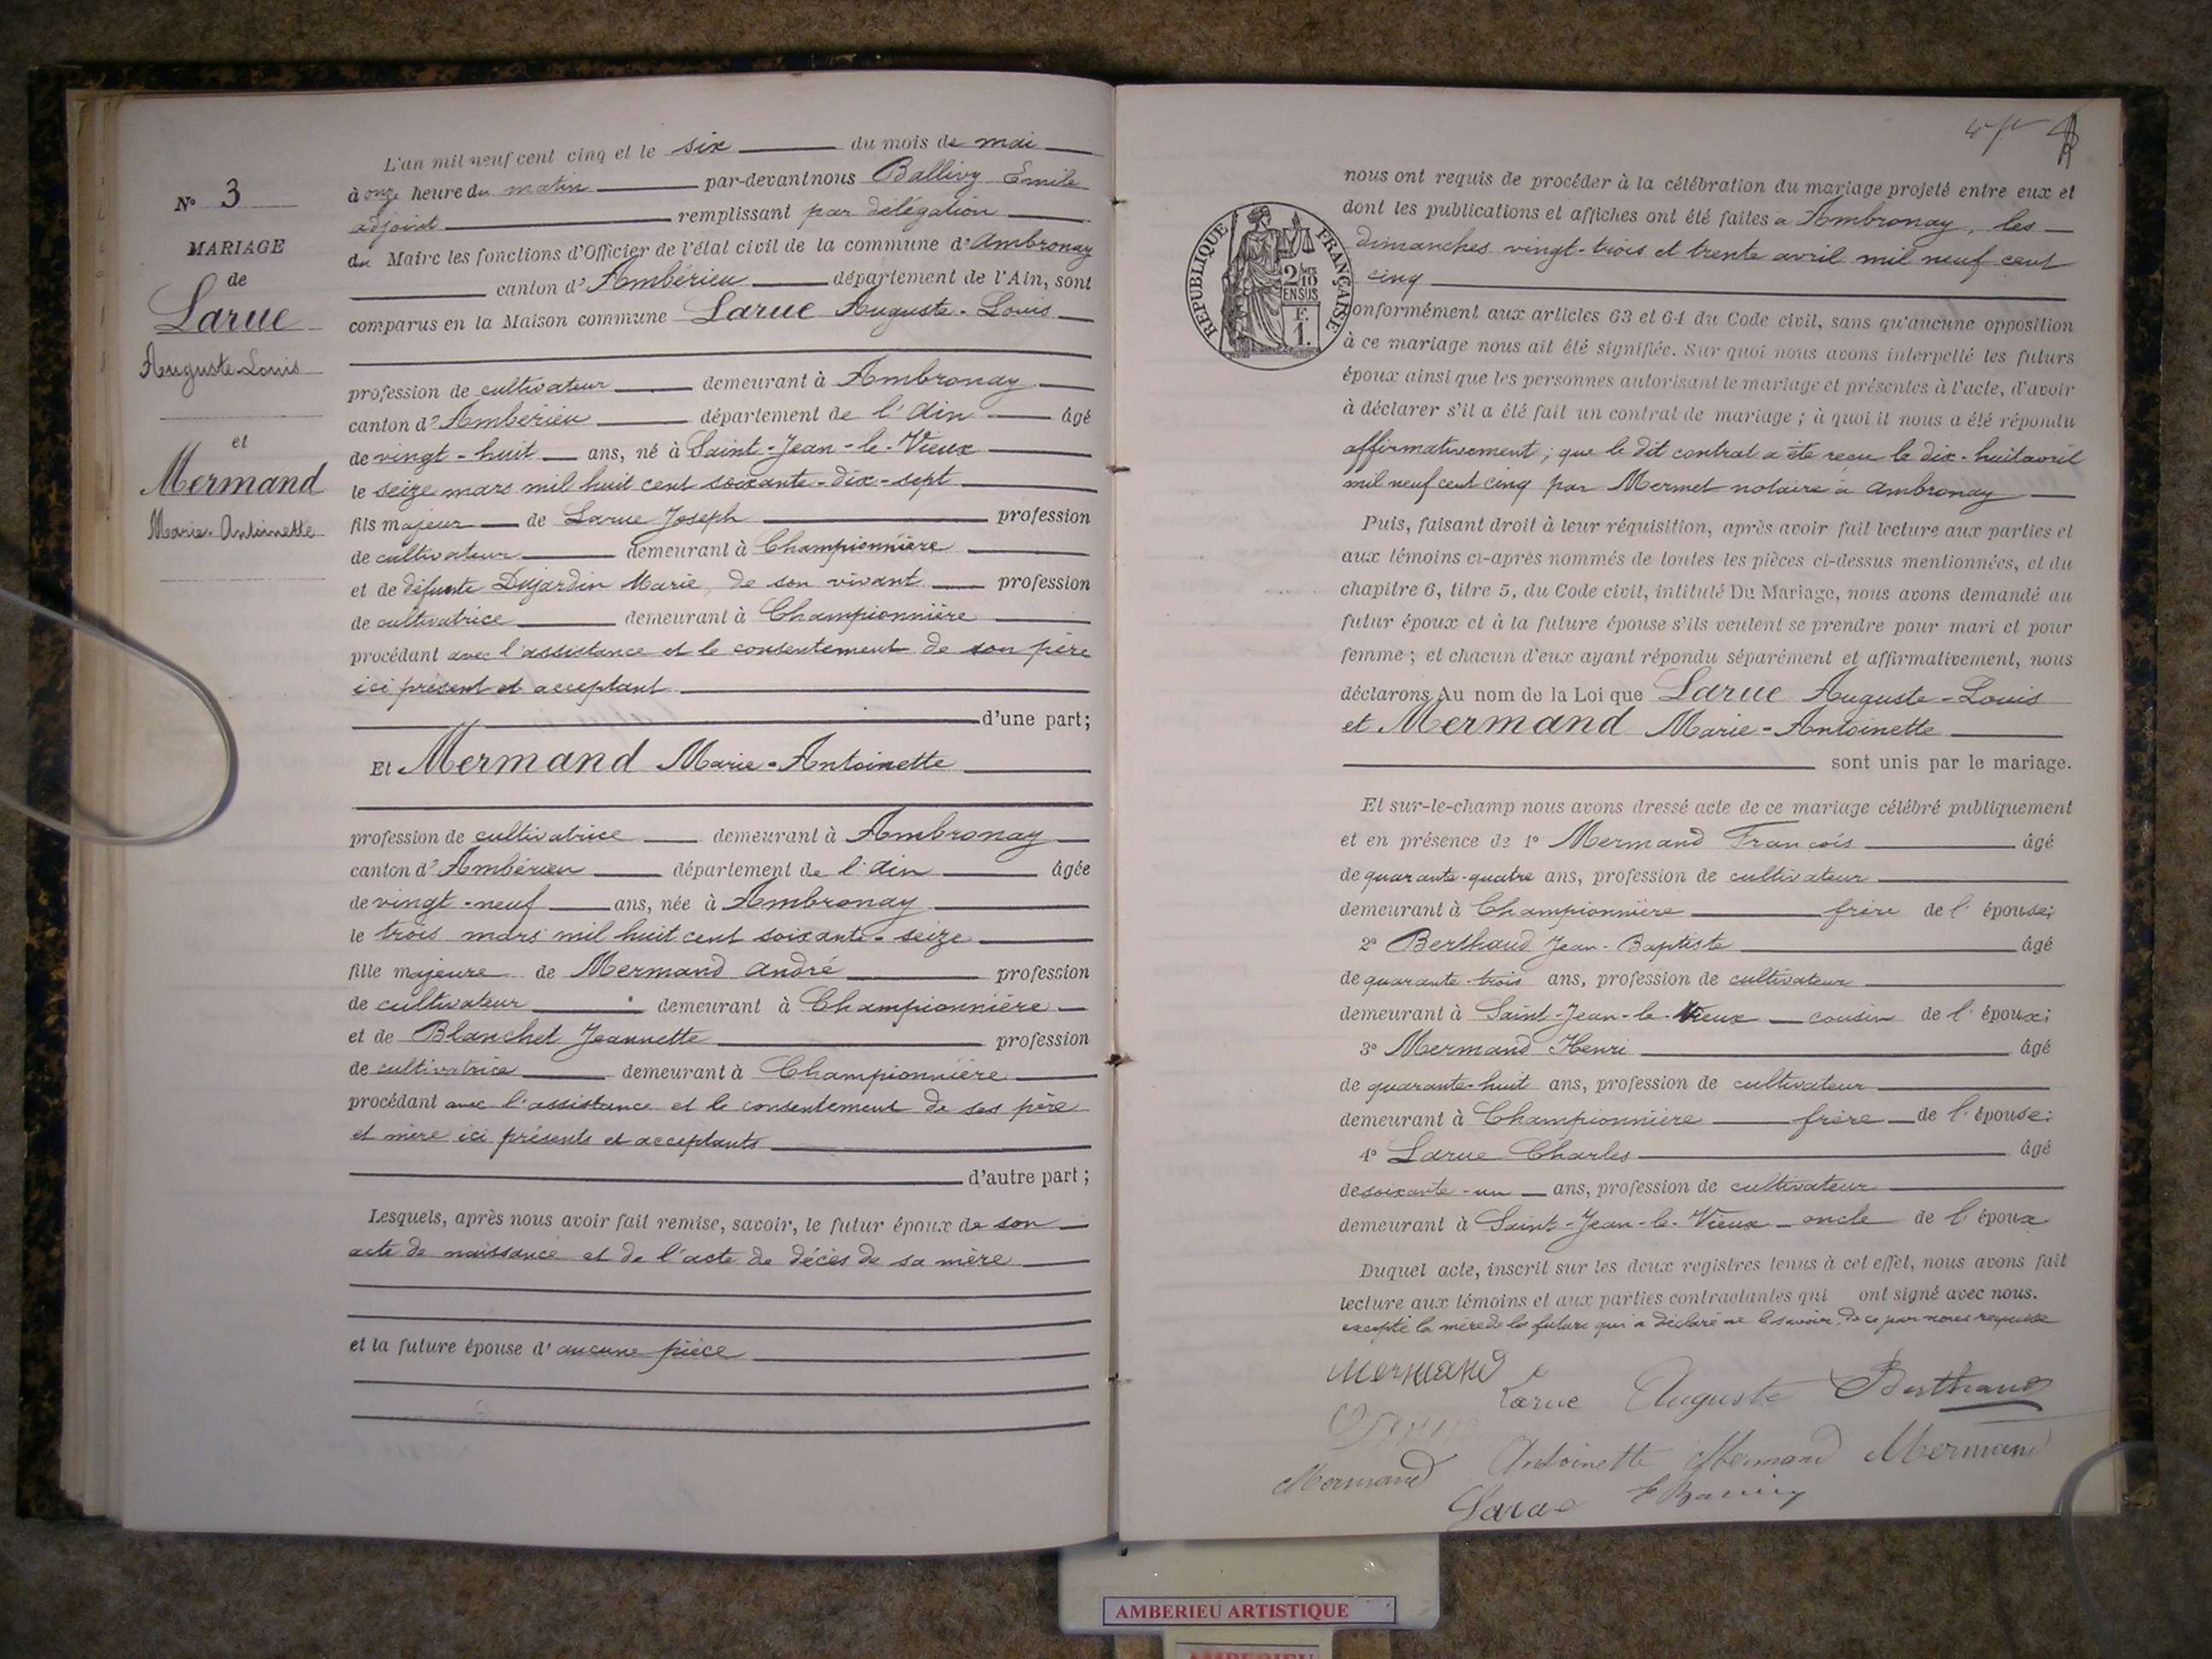 N° 3
MARIAGE
de
Larue
Auguste-Louis
et
Mermand
Marie-Antoinette
L'an mil neuf cent cinq et le six du mois de mai
à onze heure du matin par-devant nous Ballivy Emile
adjoint remplissant par délégation
du Maire les fonctions d'Officier de l'état civil de la commune d'Ambronay
canton d'Ambérieu département de l'Ain, sont
comparus en la Maison commune Larue Auguste-Louis
profession de cultivateur demeurant à Ambronay
canton d'Ambérieu département de l'Ain âgé
de vingt-huit ans, né à Saint-Jean-le-Vieux
le seize mars mil huit cent soixante-dix-sept
fils majeur de Larue Joseph profession
de cultivateur demeurant à Championnière
et de défunte Dujardin Marie, de son vivant profession
de cultivatrice demeurant à Championnière
procédant avec l'assistance et le consentement de son père
ici présent et acceptant
d'une part;
Et Mermand Marie-Antoinette
profession de cultivatrice demeurant à Ambronay
canton d'Ambérieu département de l'Ain âgée
de vingt-neuf ans, née à Ambronay
le trois mars mil huit cent soixante-seize
fille majeure de Mermand André profession
de cultivateur demeurant à Championnière
et de Blanchet Jeannette profession
de cultivatrice demeurant à Championnière
procédant avec l'assistance et le consentement de ses père
et mère ici présents et acceptants
d'autre part;
Lesquels, après nous avoir fait remise, savoir, le futur époux de son
acte de naissance et de l'acte de décès de sa mère
et la future épouse d'aucune pièce
nous ont requis de procéder à la célébration du mariage projeté entre eux et
dont les publications et affiches ont été faites à Ambronay, les
dimanches vingt-trois et trente avril mil neuf cent
cinq
RÉPUBLIQUE FRANÇAISE
2/10
EN SUS
F.
1.
conformément aux articles 63 et 64 du Code civil, sans qu'aucune opposition
à ce mariage nous ait été signifiée. Sur quoi nous avons interpellé les futurs
époux ainsi que les personnes autorisant le mariage et présentes à l'acte, d'avoir
à déclarer s'il a été fait un contrat de mariage; à quoi il nous a été répondu
affirmativement; que le dit contrat a été reçu le dix-huit avril
mil neuf cent cinq par Mermet notaire à Ambronay
Puis, faisant droit à leur réquisition, après avoir fait lecture aux parties et
aux témoins ci-après nommés de toutes les pièces ci-dessus mentionnées, et du
chapitre 6, titre 5, du Code civil, intitulé Du Mariage, nous avons demandé au
futur époux et à la future épouse s'ils veulent se prendre pour mari et pour
femme; et chacun d'eux ayant répondu séparément et affirmativement, nous
déclarons Au nom de la Loi que Larue Auguste-Louis
et Mermand Marie-Antoinette
sont unis par le mariage.
Et sur-le-champ nous avons dressé acte de ce mariage célébré publiquement
et en présence de 1° Mermand François âgé
de quarante-quatre ans, profession de cultivateur
demeurant à Championnière frère de l'épouse;
2° Berthaud Jean-Baptiste âgé
de quarante-trois ans, profession de cultivateur
demeurant à Saint-Jean-le-Vieux cousin de l'époux;
3° Mermand Henri âgé
de quarante-huit ans, profession de cultivateur
demeurant à Championnière frère de l'épouse;
4° Larue Charles âgé
de soixante-un ans, profession de cultivateur
demeurant à Saint-Jean-le-Vieux oncle de l'époux
Duquel acte, inscrit sur les deux registres tenus à cet effet, nous avons fait
lecture aux témoins et aux parties contractantes qui ont signé avec nous.
excepté la mère de la future qui a déclaré ne le savoir, de ce par nous requise
Mermand
Larue Auguste Berthaud
Mermand Antoinette Mermand Mermand
Larue E Ballivy
AMBERIEU ARTISTIQUE
AMBERIEU